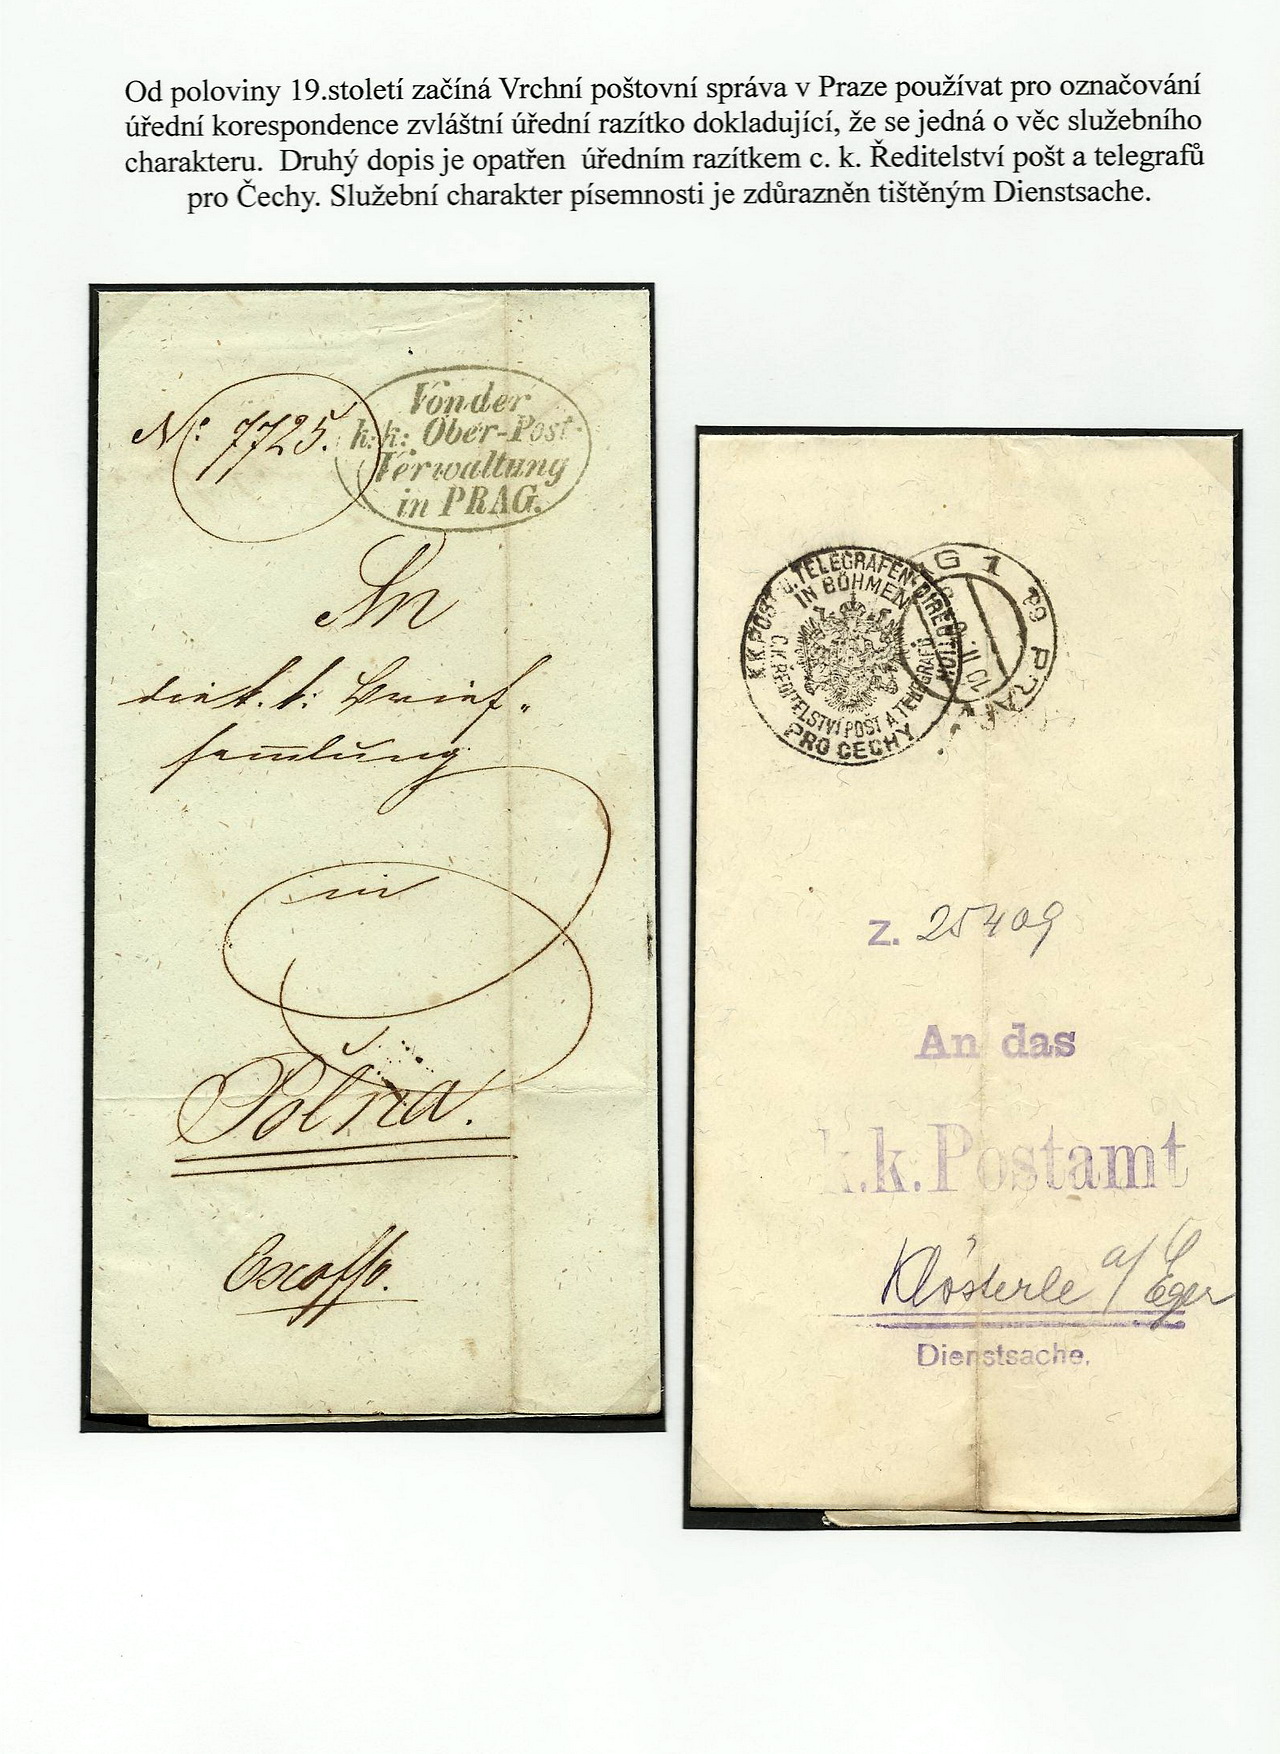 Od poloviny 19.století začíná Vrchní poštovní správa v Praze používat pro označování
úřední korespondence zvláštní úřední razítko dokladující, že se jedná o věc služebního
charakteru. Druhý dopis je opatřen úředním razítkem c. k. Ředitelství pošt a telegrafů
pro Čechy. Služební charakter písemnosti je zdůrazněn tištěným Dienstsache.
No: 7725.
Von der
k: k: Ober-Post-
Verwaltung
in PRAG.
An
die k. k. Brief-
samlung
in
Polna.
Exoffo.
K.K. POST U. TELEGRAFEN-DIRECTION
IN BÖHMEN
C.K. ŘEDITELSTVÍ POŠT A TELEGRAFŮ
PRO ČECHY
G 1
PRA
Z. 25409
An das
k.k. Postamt
Klösterle a/ Eger
Dienstsache.